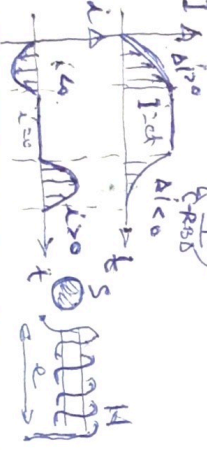 I
Δi>0
I=ct
Δi<0
t
i
i<0
i=0
i>0
t
S
H
l